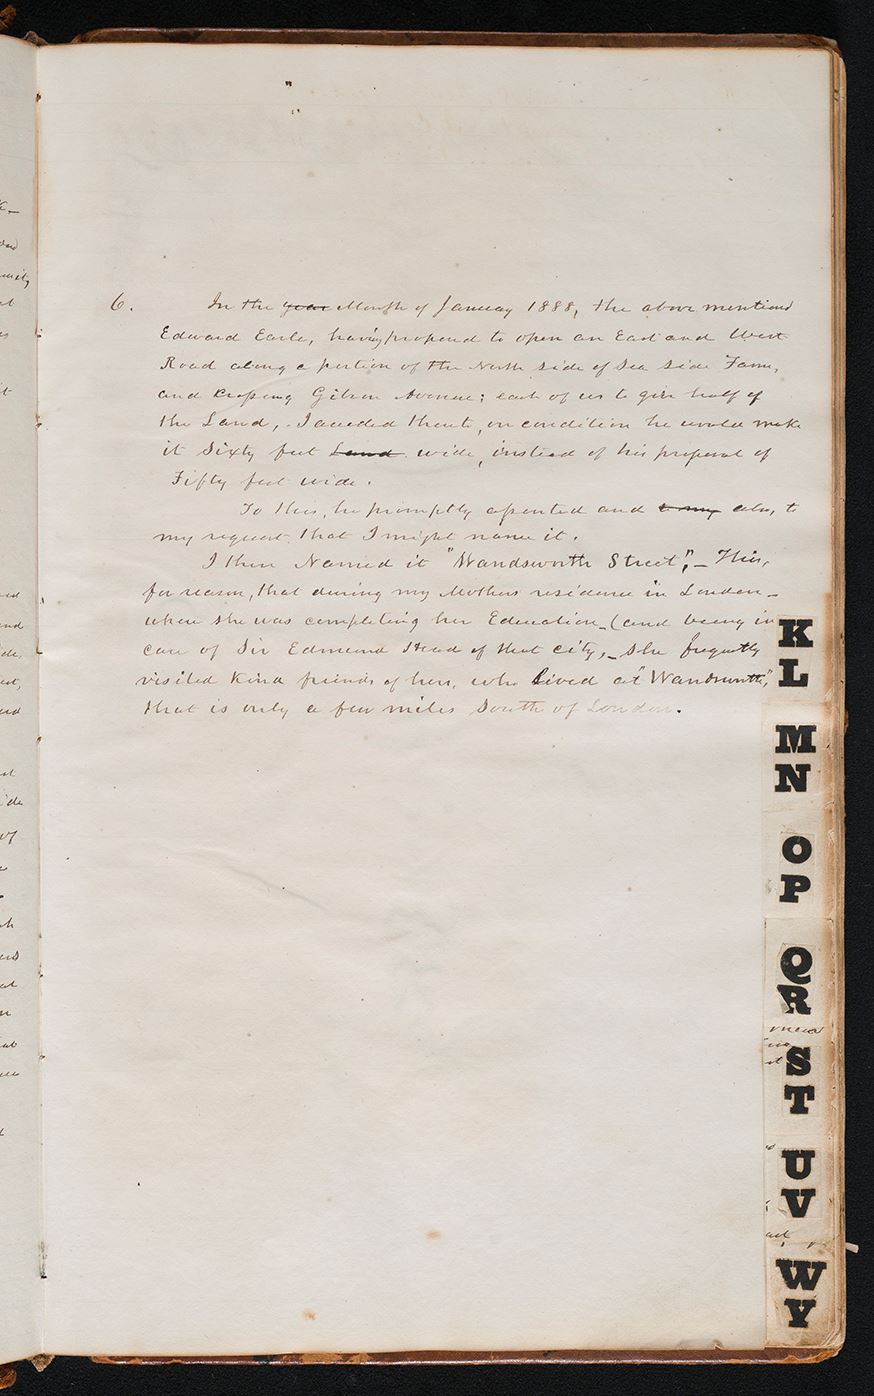 6. In the ~~year~~ Month of January 1888, the above mentioned
Edward Earle, having proposed to open an East and West
Road along a portion of the North side of Sea Side Farm,
and Crossing Gibson Avenue; each of us to give half of
the Land, I acceded thereto, on condition he would make
it Sixty feet ~~Land~~ wide, instead of his proposal of
Fifty feet wide.
To this, he promptly assented and ~~to my~~ also, to
my request, that I might name it.
I then Named it "Wandsworth Street", – This,
for reason, that during my Mothers residence in London –
when she was completing her Education – (and being in
care of Sir Edmund Head of that city, – she frequently
visited Kind friends of hers, who lived at "Wandsworth,"
that is only a few miles South of London.
K
L
M
N
O
P
Q
R
S
T
U
V
W
Y